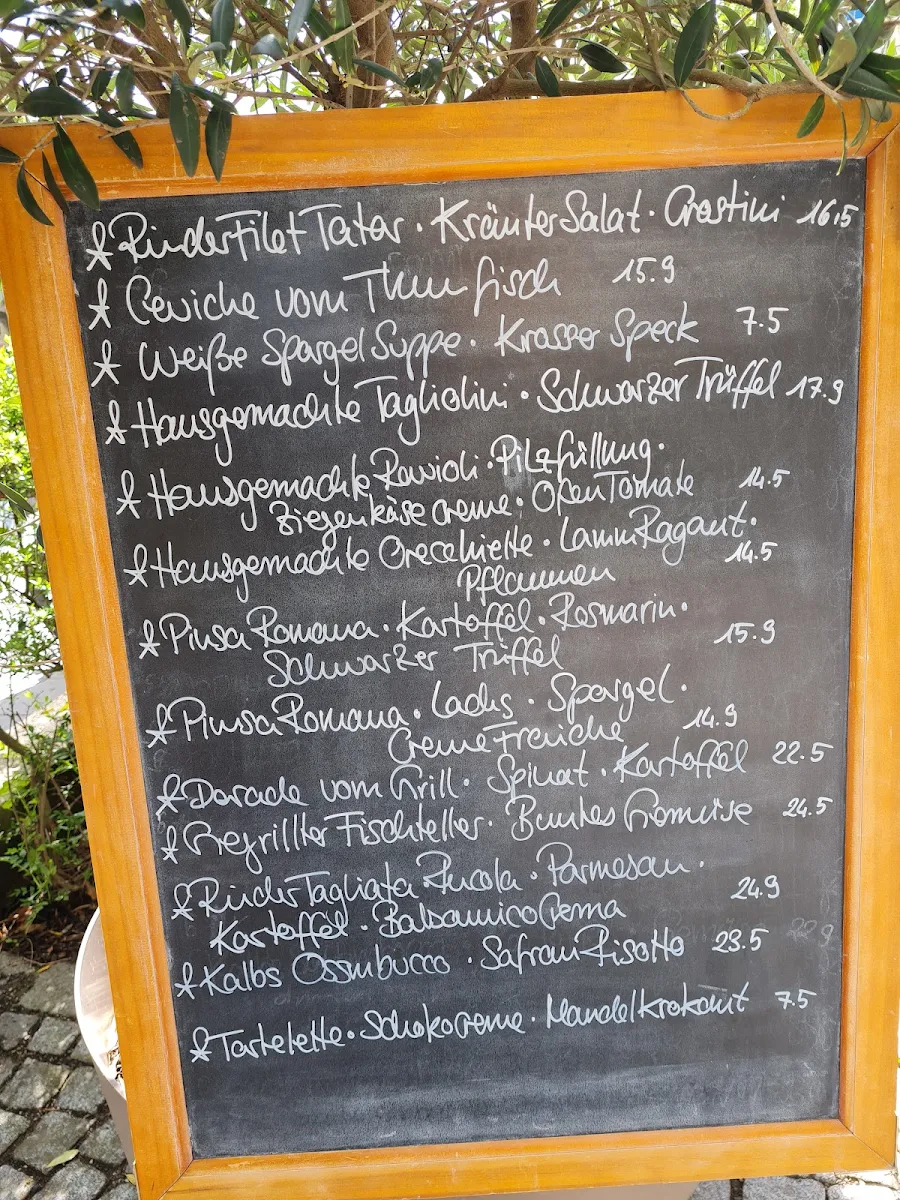 * RinderFilet Tatar · KräuterSalat · Crostini 16.5
* Ceviche vom Thunfisch 15.9
* Weiße SpargelSuppe · Krosser Speck 7.5
* Hausgemachte Tagliolini · Schwarzer Trüffel 17.9
* Hausgemachte Ravioli · Pilzfüllung ·
Ziegenkäsecreme · OfenTomate 14.5
* Hausgemachte Orecchiette · LammRagout ·
Pflaumen 14.5
* Pinsa Romana · Kartoffel · Rosmarin ·
Schwarzer Trüffel 15.9
* Pinsa Romana · Lachs · Spargel ·
Creme Fraiche 14.9
* Dorade vom Grill · Spinat · Kartoffel 22.5
* Gegrillter Fischteller · Buntes Gemüse 24.5
* RinderTagliata Rucola · Parmesan ·
Kartoffel · BalsamicoCrema 24.9
* Kalbs Ossobucco · SafranRisotto 23.5
* Tartelette · Schokocreme · Mandelkrokant 7.5